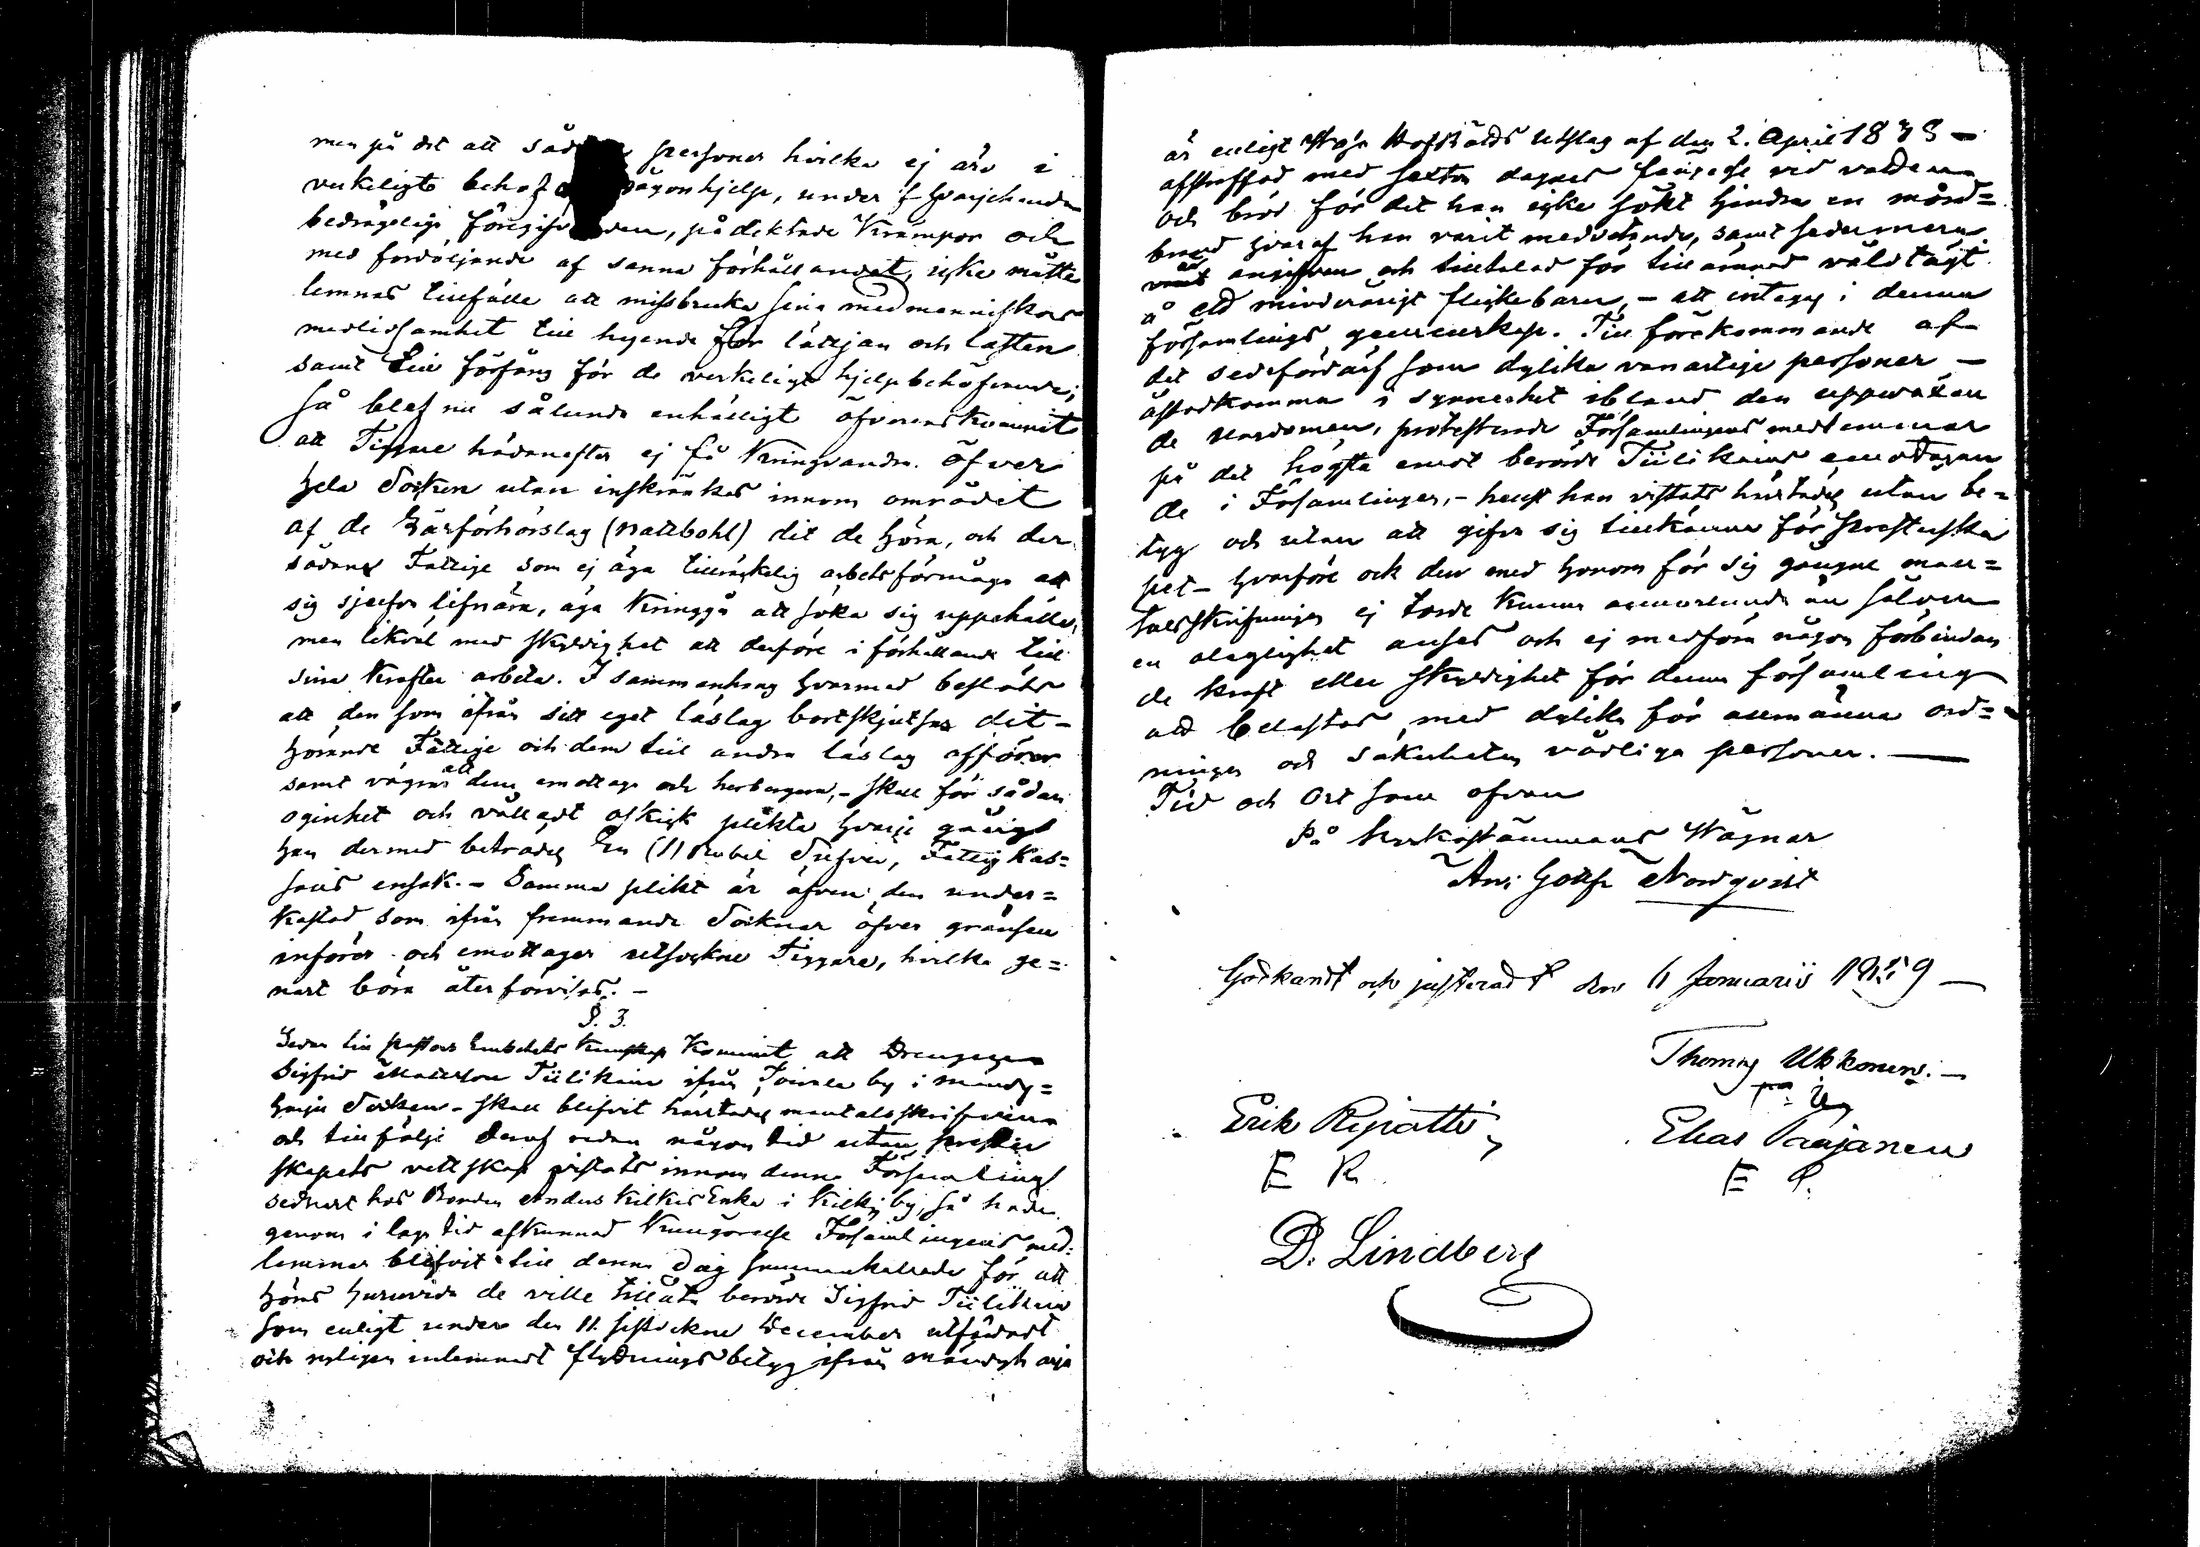 men på det att såd personer hvilka ej äro i
verkeligt behof någon hjelp, under hvarjehanda
bedrägeliga föregifv den, på dicktade Krämpor och
med fördöljande af sanna förhållandet, icke måtte
lemnas tillfälle att missbruka sina medmenniskors
medlidsamhet till hyende för lättjan och lasten
samt till förfång för de verkeligt hjelpbehöfvande;
så blef nu sålunda enhälligt öfverenskommit
att Tiggare hädanefter ej få Kringvandra öfver
hela Socken utan inskränkas innom området
af de Läsförhörslag (Mattbohl) dit de höra, och der
sådane Fattige som ej äga tillräckelig arbetsförmåga att
sig sjelfva lifnära, äga Kringgå att söka sig uppehälle,
men likväl med skyldighet att derföre i förhållande till
sina Krafter arbeta. I sammanhang hvarmed beslöts
att den som ifrån sitt eget läslag bortskjutsar dit-
hörande Fattige och dem till andra läslag afförer
samt vägrar att dem emottaga och herbergera, - skall för sådan
oginhet och vålladt ofskick plikta hvarje gång
han dermed beträdes En (1) Rubel Silfver, Fattig Kas=
sans ensak. - Samma plikt är äfven den under=
Kastad som ifrån främmande Socknar öfver gränsen
införer och emottager utsockne Tiggare, hvilka ge=
nast böra återförvisas. -
§. 3.
Sedan till Pastors Embetets Kunskap Kommit att Drengen
Sigfrid Mattsson Tiilikain ifrån Joinila by i Mändy=
harju Socken - skall blifvit härstädes mantalsskrifven
och till följe deraf redan någon tid utan prester
skapets vettskap vistats innom denna Församling
sednast hos Bonden Anders Kilkis Enka i Kilkis by, så hade
genom i laga tid afkunnad Kungörelse Församlingens med=
lemmar blifvit till denna dag sammankallade för att
höras huruvida de ville tillåta berörde Sigfrid Tiilikain
som enligt under den 11. sistvekne December utfärdadt
och nyligen inlemnadt flyttningsbetyg ifrån Mändyharju
är enligt Hofrätts Utslag af den 2. April 1838 -
afstraffad med sexton dagars fängelse vid vatten
och bröd för det han icke sökt hindra en mord=
brand hvaraf han varit medvetande, samt sedermera
angifven och tilltalad för tillärnad våldtägt
å ett minderårigt flickebarn, - att intagas i denna
församlings gemenskap. Till förekommande af
det sedefördärf som dylika vanartige personer -
åstadkomma i synnerhet ibland den uppväxan
de Ungdomen, protesterade Församlingens medlemmar
på det högsta emot berörde Tiilikains emottagan
de i Församlingen, - helst han vistats härstädes utan be=
tyg och utan att gifva sig tillkänna för Presterska
pet - hvarföre ock den med honom för sig gångne man=
talsskrifningen ej torde Kunna annorlunda än såsom
en olaglighet anses och ej medföra någon förbindan
de kraft eller skyldighet för denna församling
att belastas med dylika för allmänna ord=
ningen och säkerheten vådliga personer. -
Tid och Ort som ofvan
På Kyrkostämmans Wägnar
And: Gottfr Nordqvist
Godkändt och justeradt den 6 Januarii 1859 -
Thomas Ukkonen. -
Erik Repatti
E R
Elias Paajanen
E P.
D. Lindberg